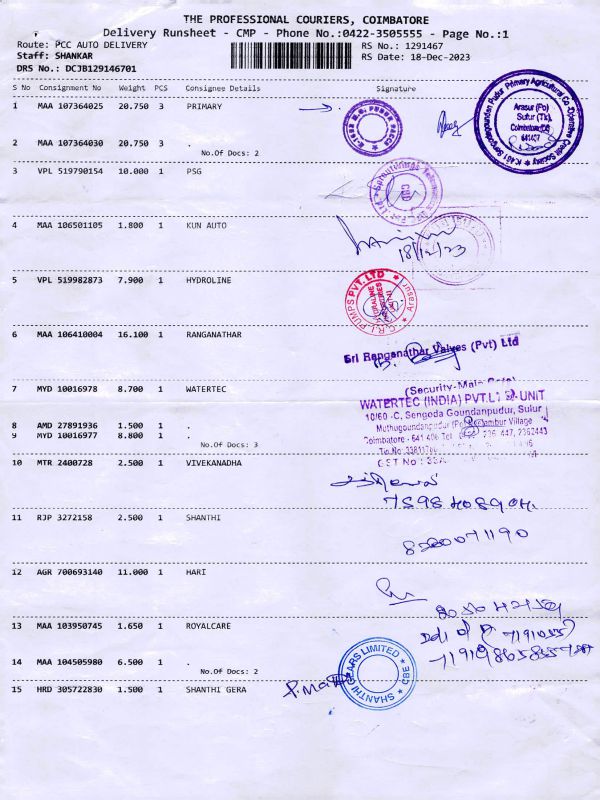 THE PROFESSIONAL COURIERS, COIMBATORE
Delivery Runsheet - CMP - Phone No.:0422-3505555 - Page No.:1
Route: PCC AUTO DELIVERY RS No.: 1291467
Staff: SHANKAR RS Date: 18-Dec-2023
DRS No.: DCJB129146701
S No Consignment No Weight PCS Consignee Details Signature
1 MAA 107364025 20.750 3 PRIMARY
Arasur (Po)
Sulur (Tk),
Coimbatore(Dt)
641407
2 MAA 107364030 20.750 3 .
No.Of Docs: 2
3 VPL 519790154 10.000 1 PSG
4 MAA 106501105 1.800 1 KUN AUTO
18/12/23
5 VPL 519982873 7.900 1 HYDROLINE
C.R.I PUMPS PVT.LTD
6 MAA 106410004 16.100 1 RANGANATHAR
Sri Ranganathar Valves (Pvt) Ltd
7 MYD 10016978 8.700 1 WATERTEC
WATERTEC (INDIA) PVT.LTD UNIT
10/60 -C, Sengoda Goundanpudur, Sulur
8 AMD 27891936 1.500 1 .
9 MYD 10016977 8.800 1 .
No.Of Docs: 3
10 MTR 2400728 2.500 1 VIVEKANADHA
11 RJP 3272158 2.500 1 SHANTHI
8220071190
12 AGR 700693140 11.000 1 HARI
13 MAA 103950745 1.650 1 ROYALCARE
14 MAA 104505980 6.500 1 .
No.Of Docs: 2
15 HRD 305722830 1.500 1 SHANTHI GERA
SHANTHI GEARS LIMITED
CBE